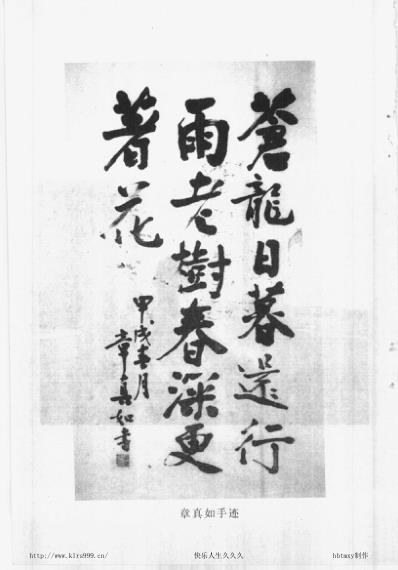 蒼龍日暮還行
雨老樹春深更
著花
甲戌春月
章真如書
章真如手迹
http://www.klrs999.cn/
快乐人生久久久
hbtmxy制作